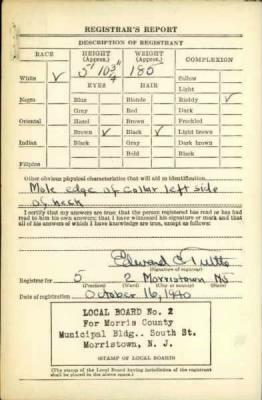 REGISTRAR'S REPORT
DESCRIPTION OF REGISTRANT
RACE HEIGHT (Approx.) WEIGHT (Approx.) COMPLEXION
White ✓ 5' 10 3/4" 185 Sallow
EYES HAIR Light
Negro Blue Blonde Ruddy ✓
Gray Red Dark
Oriental Hazel Brown Freckled
Brown ✓ Black ✓ Light brown
Indian Black Gray Dark brown
Bald Black
Filipino
Other obvious physical characteristics that will aid in identification
Mole edge of collar left side
of neck
I certify that my answers are true; that the person registered has read or has had
read to him his own answers; that I have witnessed his signature or mark and that
all of his answers of which I have knowledge are true, except as follows:
Edward C.
(Signature of registrar)
Registrar for 5 2 Morristown NJ
(Precinct) (Ward) (City or county) (State)
Date of registration October 16, 1940
LOCAL BOARD No. 2
For Morris County
Municipal Bldg.. South St.
Morristown, N. J.
(STAMP OF LOCAL BOARD)
(The stamp of the Local Board having jurisdiction of the registrant
shall be placed in the above space.)